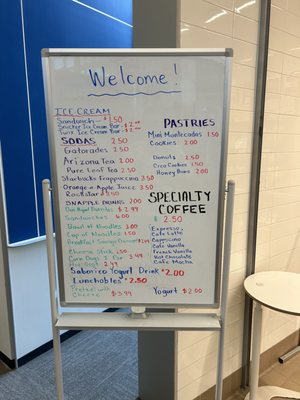 Welcome!
ICE CREAM
Sandwich - $1.50
Snicker Ice Cream Bar - $2.00
Twix Ice Cream Bar - $2.00
SODAS 2.50
Gatorades 2.50
Arizona Tea 2.00
Pure Leaf Tea 2.50
Starbucks Frappuccino 3.50
Orange & Apple Juice 3.50
Rockstar 3.50
SNAPPLE DRINKS 2.00
$2.99
Sandwiches 6.00
Bowl of Noodles 1.50
Cup of Noodles 1.50
Breakfast Sausage
Cheese Stick 1.50
Corn Dogs 1 for $3.99
Hot Dogs 2.49
Saborico Yogurt Drink $2.00
Lunchables $2.50
Pretzel with
Cheese $3.99
PASTRIES
Mini Mantecadas 1.50
Cookies 2.00
Donuts 2.50
Oreo Cookies 1.50
Honey Buns 2.00
SPECIALTY
COFFEE
$2.50
Espresso,
Cafe Latte
Cappuccino
Cafe Vanilla
French Vanilla
Hot Chocolate
Cafe Mocha
Yogurt $2.00